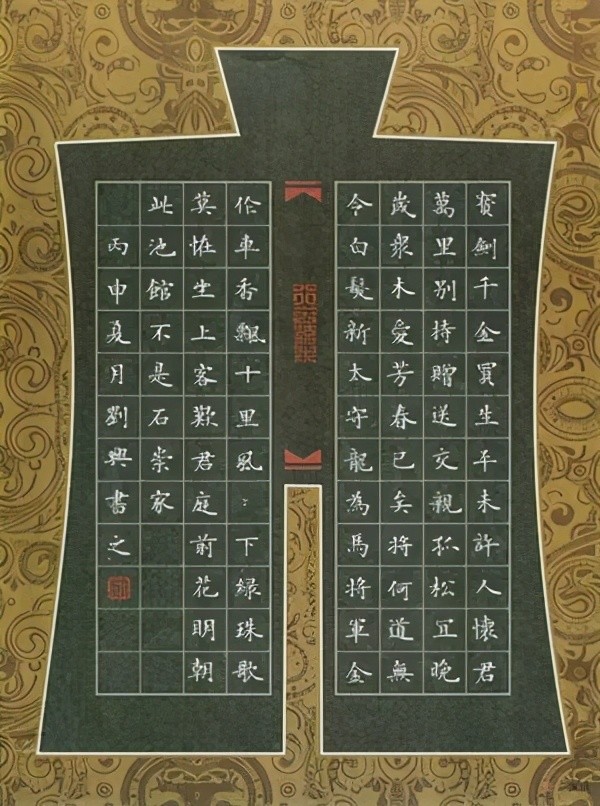 寶劍千金買生平未許人懷君
萬里別持贈送交親孤松宜晚
歲衆木愛芳春已矣將何道無
令白髮新太守龍為馬將軍金
作車香飄十里風〻下緑珠歌
莫怪坐上客歎君庭前花明朝
此池館不是石崇家
丙申夏月劉興書之